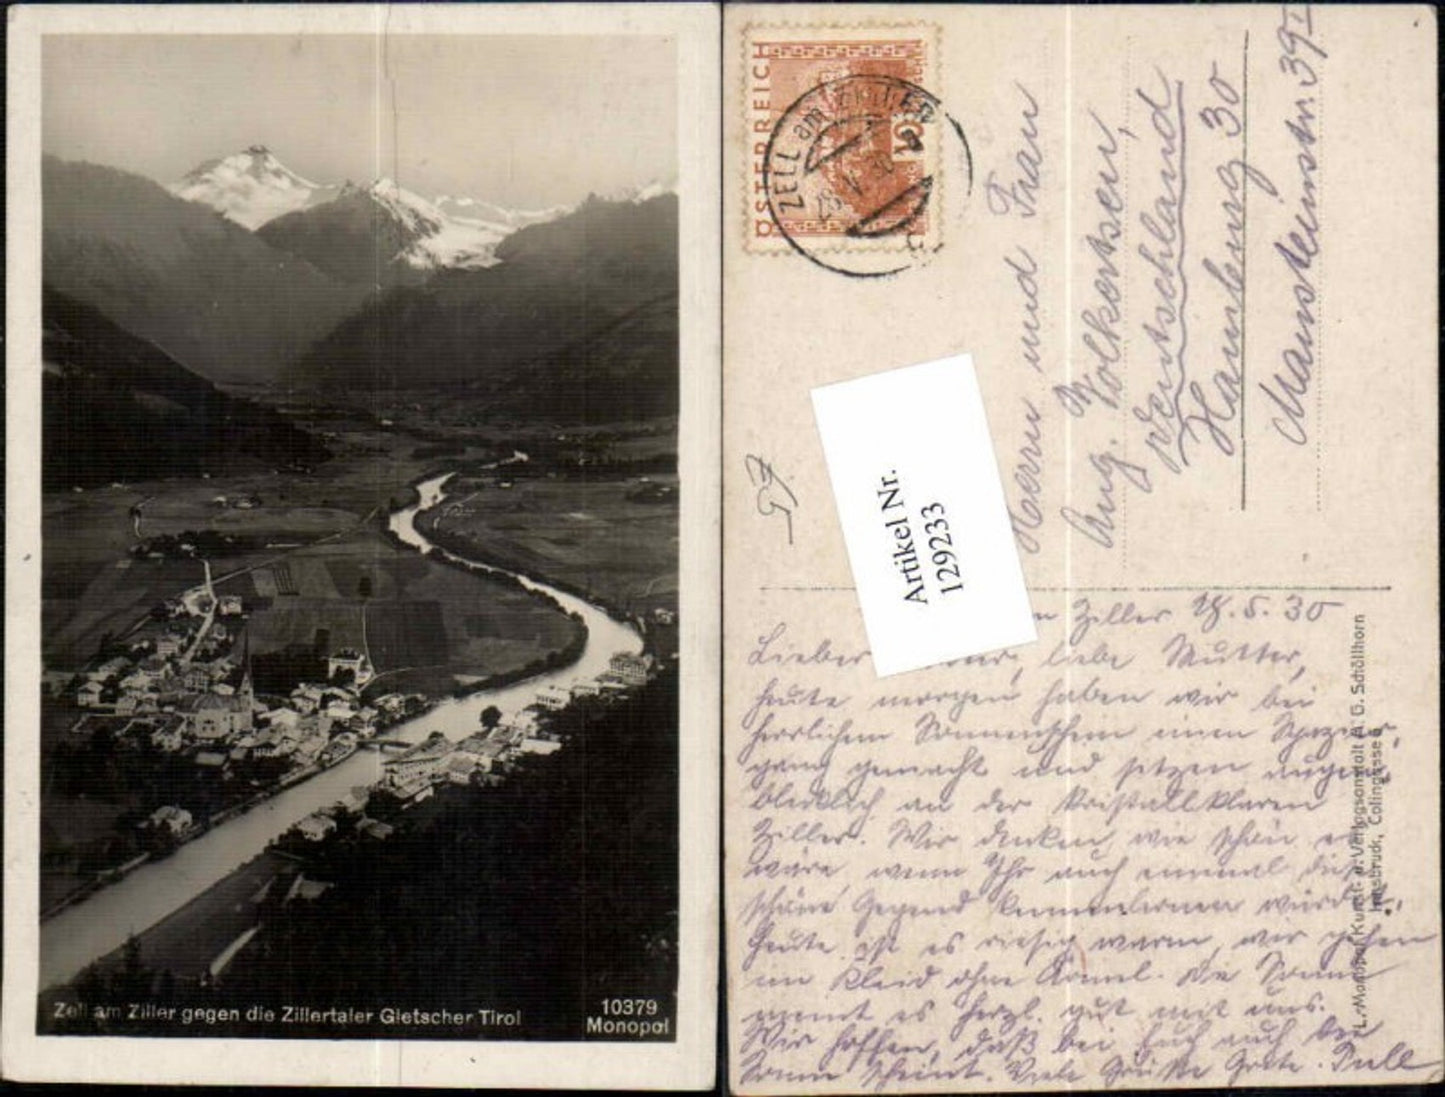 Zell am Ziller gegen die Zillertaler Gletscher Tirol
10379
Monopol
ÖSTERREICH
ZELL am ZILLER
Herrn und Frau
Aug. Volkertsen,
Deutschland
Hamburg 30
Mansteinstr. 39 I
Artikel Nr.
129233
Ziller 28.5.30
Lieber liebe Mutter,
heute morgen haben wir bei
herrlichem Sonnenschein einen Spazier-
gang gemacht und sitzen augen-
blicklich an der kristallklaren
Ziller. Wir denken, wie schön es
wäre wenn Ihr auch einmal diese
schöne Gegend kennenlernen würdet.
Heute ist es riesig warm, wir gehen
im Kleid ohne Ärmel. Die Sonne
meint es herzl. gut mit uns.
Wir hoffen, daß bei Euch auch die
Sonne scheint. Viele Grüße
L. Monopol Kunst- u. Verlagsanstalt A. G. Schöllhorn
Innsbruck, Colingasse